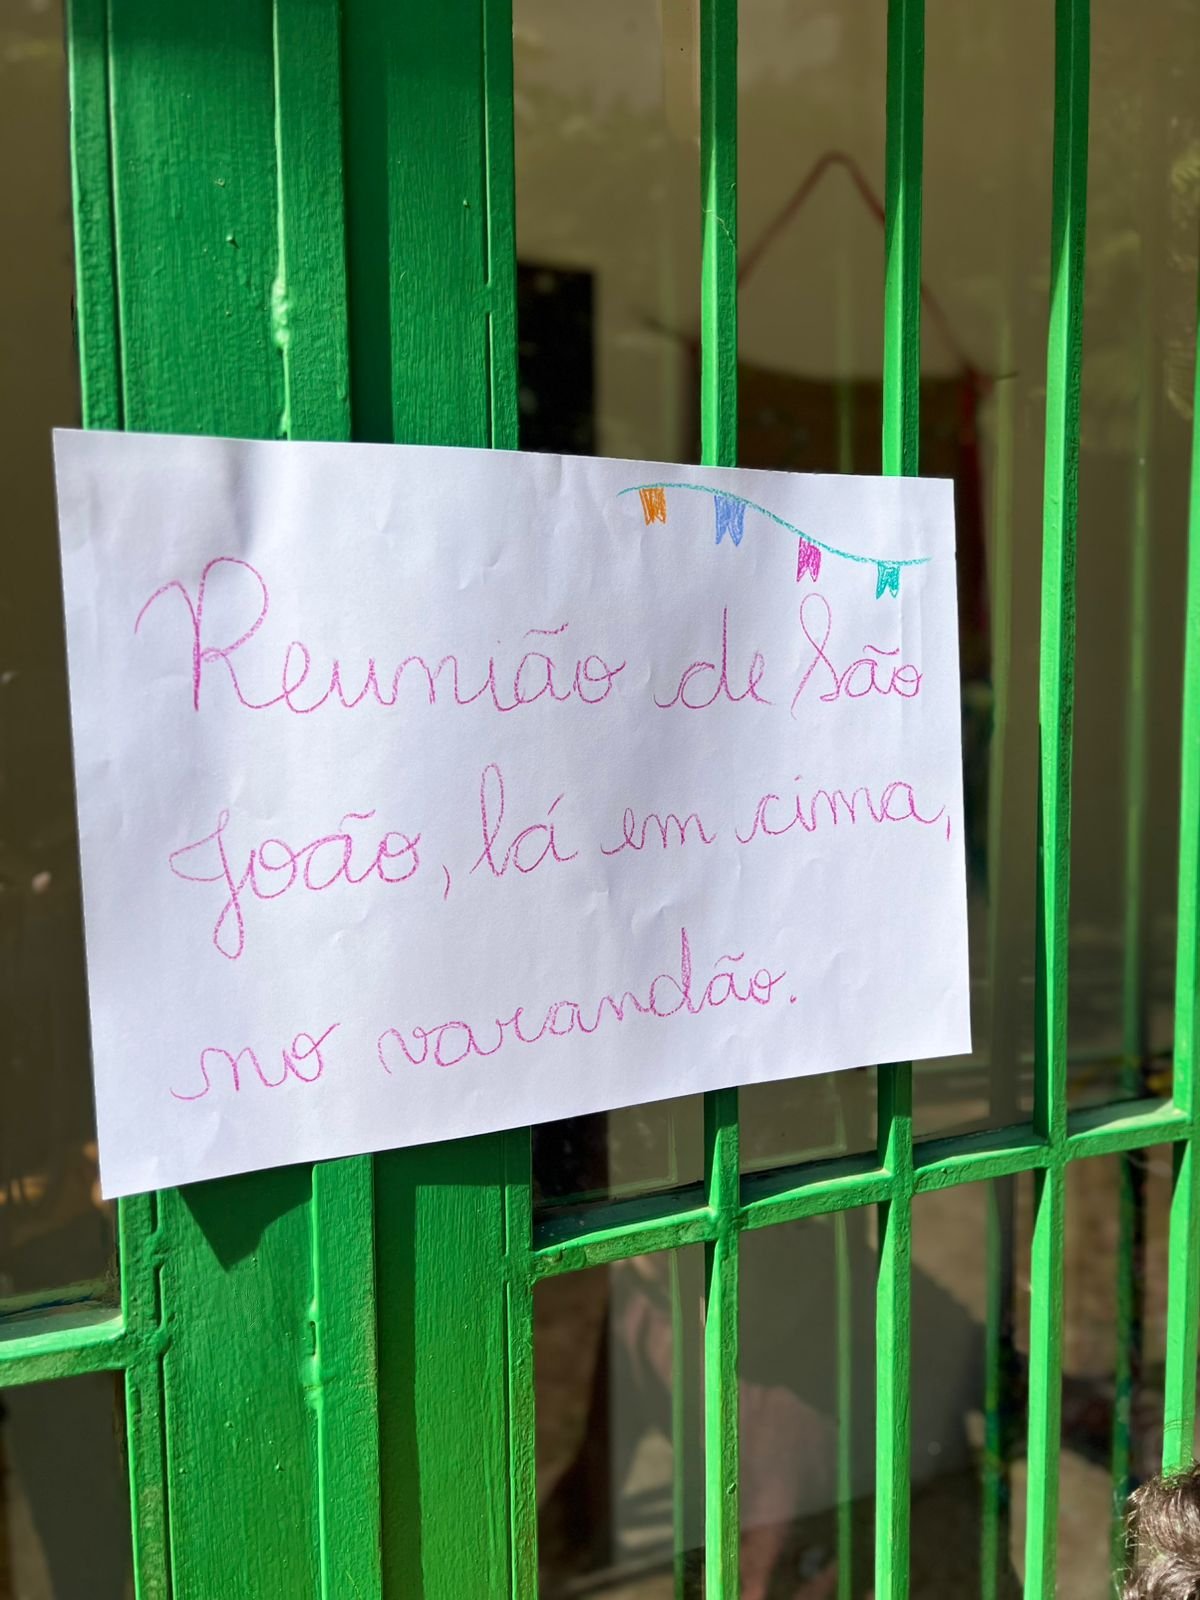 Reunião de São
João, lá em cima,
no varandão.